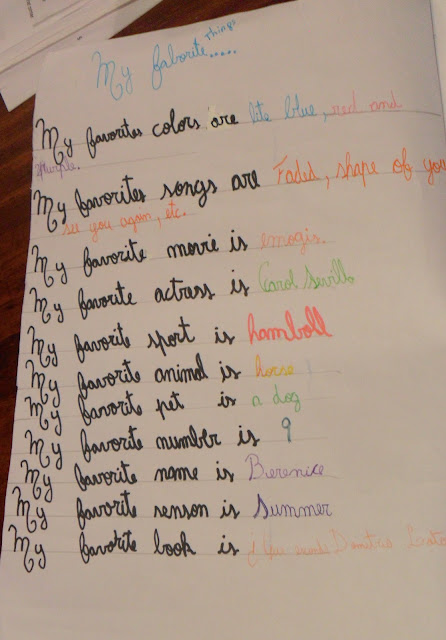 My faborite things.....
My favorites colors are lite blue, red and
purple.
My favorites songs are Faded, shape of you
see you again, etc.
My favorite movie is emogis.
My favorite actress is Carol Sevilla
My favorite sport is hamboll
My favorite animal is horse
My favorite pet is a dog
My favorite number is 9
My favorite name is Berenice
My favorite senson is Summer
My favorite book is